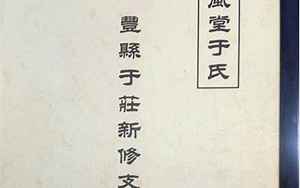 風堂于氏
豐縣于莊新修支